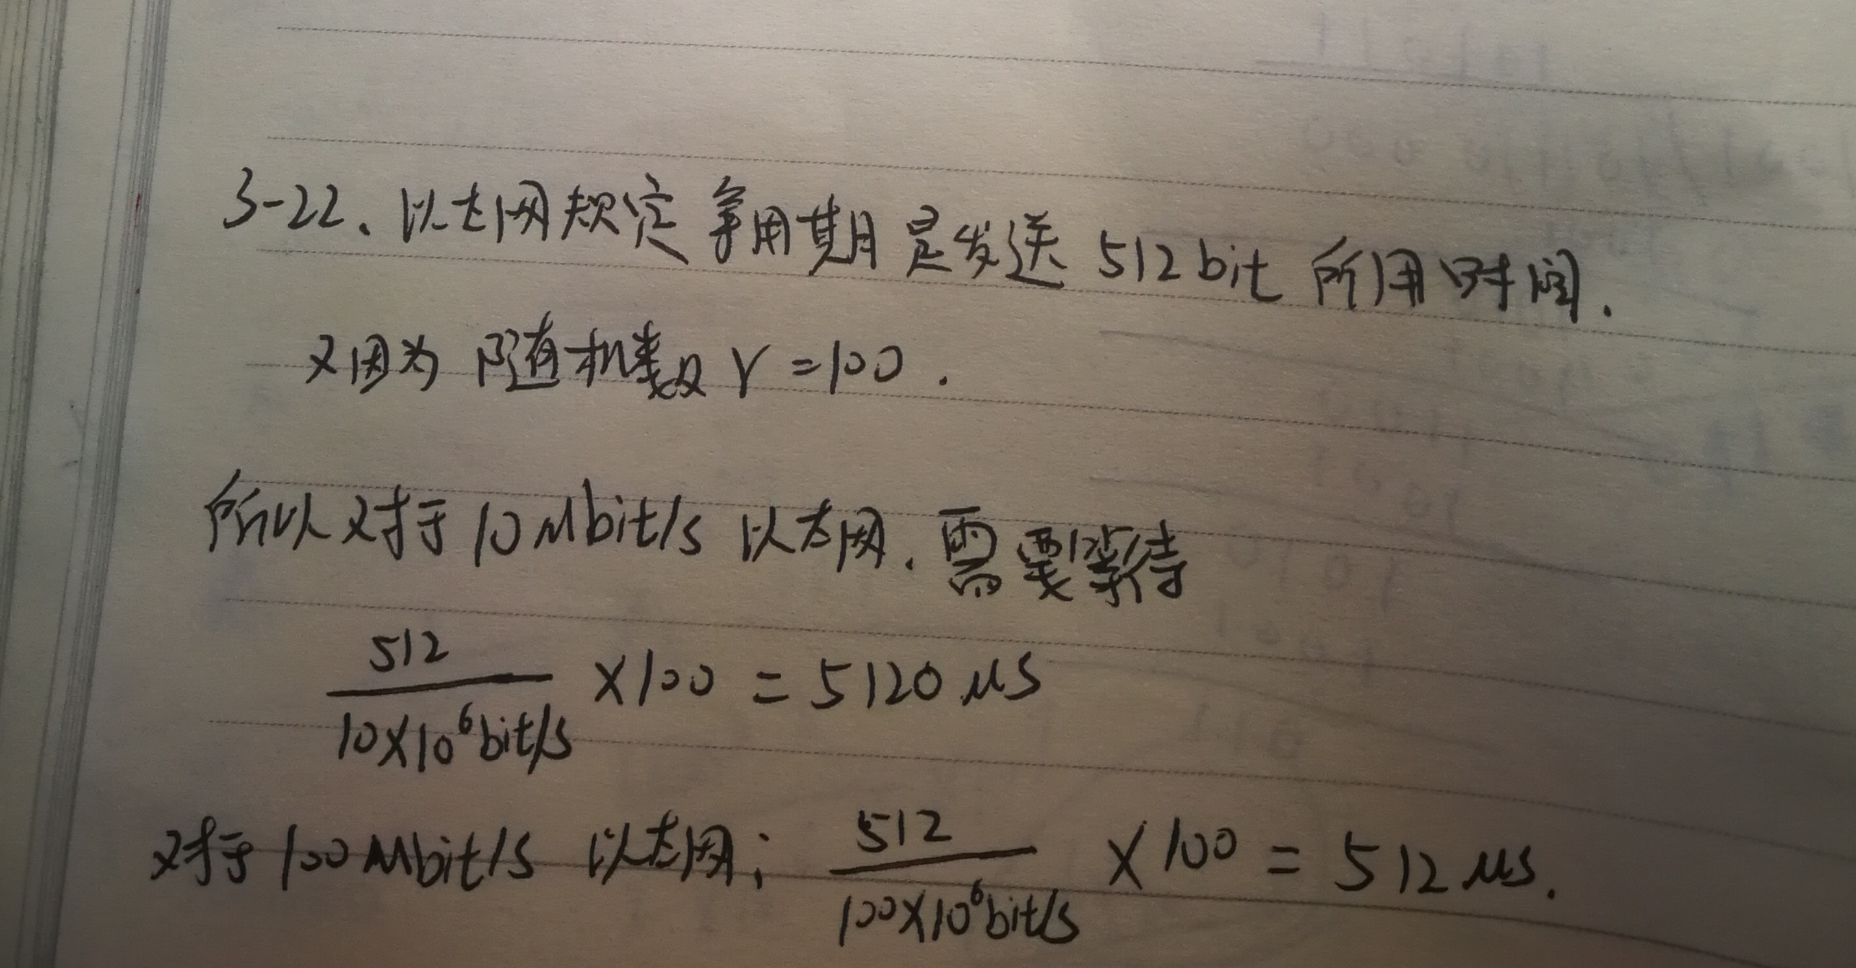 3-22、以太网规定争用期是发送 512 bit 所用时间.
又因为 随机数 r = 100 .
所以对于 10 Mbit/s 以太网. 需要等待
512 / 10×10⁶bit/s ×100 = 5120 μs
对于 100 Mbit/s 以太网; 512 / 100×10⁶bit/s ×100 = 512 μs.